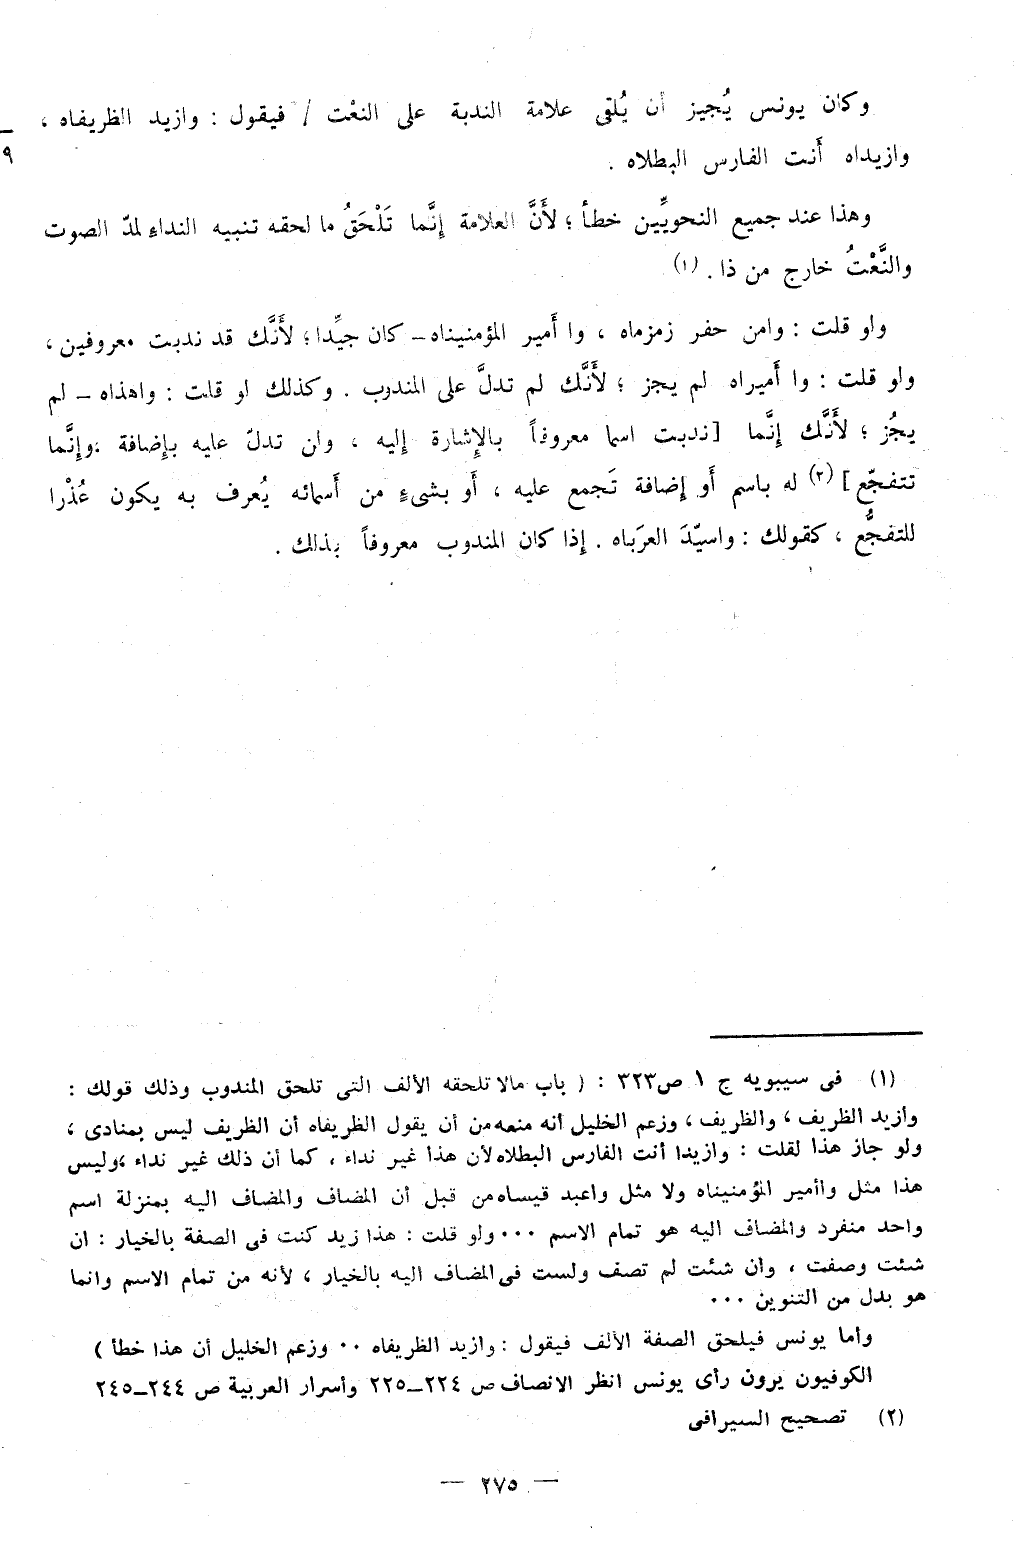 وكان يونس يُجيز أن يُلقى علامة الندبة على النعْت / فيقول : وازيد الظريفاه ،
٩
وازيداه أَنت الفارس البطلاه .
وهذا عند جميع النحويِّين خطأ ؛ لأَنَّ العلامة إنَّما تَلْحَقُ ما لحقه تنبيه النداءِ لمدّ الصوت
والنَّعْتُ خارج من ذا . (١)
ولو قلت : وامن حفر زمزماه ، وا أَمير المؤمنيناه – كان جيِّدا ؛ لأَنَّك قد ندبت معروفين ،
ولو قلت : وا أَميراه لم يجز ؛ لأَنَّك لم تدلَّ على المندوب . وكذلك لو قلت : واهذاه – لم
يجُز ؛ لأَنَّك إنَّما [ندبت اسما معروفاً بالإِشارة إليه ، ولن تدلّ عليه بإِضافة ؛ وإنَّما
تتفجّع] (٢) له باسم أَو إضافة تَجمع عليه ، أَو بشىءٍ من أَسمائه يُعرف به يكون عُذْرا
للتفجُّع ، كقولك : واسيّدَ العرَباه . إذا كان المندوب معروفاً بذلك .
(١) فى سيبويه ج ١ ص ٣٢٣ : ( باب مالا تلحقه الألف التى تلحق المندوب وذلك قولك :
وأزيد الظريف ، والظريف ، وزعم الخليل أنه منعه من أن يقول الظريفاه أن الظريف ليس بمنادى ،
ولو جاز هذا لقلت : وازيدا أنت الفارس البطلاه لأن هذا غير نداء ، كما أن ذلك غير نداء ، وليس
هذا مثل واأمير المؤمنيناه ولا مثل واعبد قيساه من قبل أن المضاف والمضاف اليه بمنزلة اسم
واحد منفرد والمضاف اليه هو تمام الاسم ٠٠٠ ولو قلت : هذا زيد كنت فى الصفة بالخيار : ان
شئت وصفت ، وان شئت لم تصف ولست فى المضاف اليه بالخيار ، لأنه من تمام الاسم وانما
هو بدل من التنوين ٠٠٠
وأما يونس فيلحق الصفة الألف فيقول : وازيد الظريفاه ٠٠ وزعم الخليل أن هذا خطأ )
الكوفيون يرون رأى يونس انظر الانصاف ص ٢٢٤–٢٢٥ وأسرار العربية ص ٢٤٤–٢٤٥
(٢) تصحيح السيرافى
— ٢٧٥ —